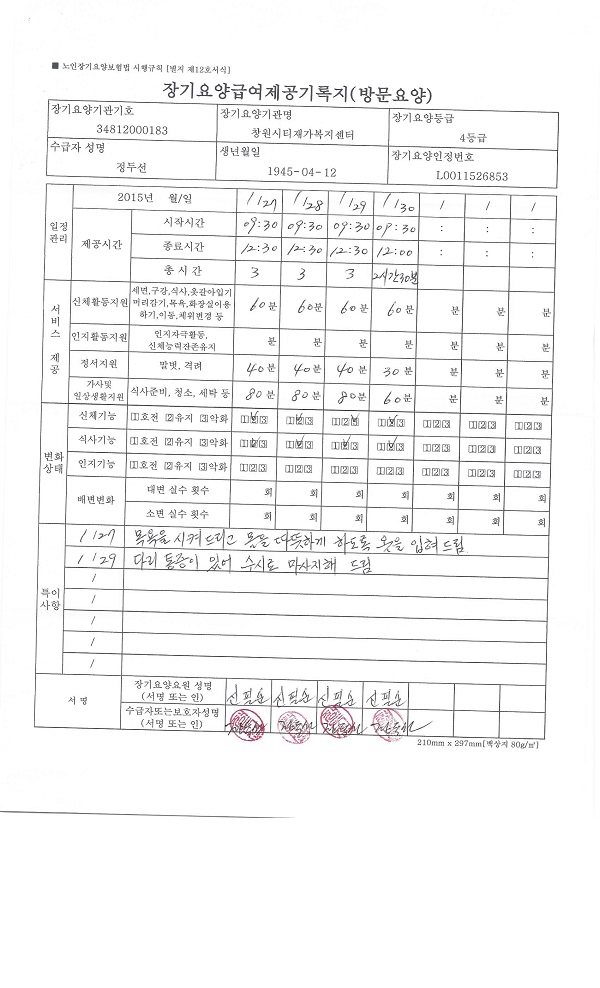 ■ 노인장기요양보험법 시행규칙 [별지 제12호서식]
장기요양급여제공기록지(방문요양)
장기요양기관기호 장기요양기관명 장기요양등급
34812000183 창원시티재가복지센터 4등급
수급자 성명 생년월일 장기요양인정번호
정두선 1945-04-12 L0011526853
일정관리 2015년 월/일 1/27 1/28 1/29 1/30 / / /
제공시간 시작시간 09:30 09:30 09:30 09:30 : : :
종료시간 12:30 12:30 12:30 12:00 : : :
총 시간 3 3 3 2시간30분
서비스 제공 신체활동지원 세면,구강,식사,옷갈아입기 머리감기,목욕,화장실이용 하기,이동,체위변경 등 60분 60분 60분 60분 분 분 분
인지활동지원 인지자극활동, 신체능력잔존유지 분 분 분 분 분 분 분
정서지원 말벗, 격려 40분 40분 40분 30분 분 분 분
가사및 일상생활지원 식사준비, 청소, 세탁 등 80분 80분 80분 60분 분 분 분
변화상태 신체기능 1호전 2유지 3악화 123 123 123 123 123 123 123
식사기능 1호전 2유지 3악화 123 123 123 123 123 123 123
인지기능 1호전 2유지 3악화 123 123 123 123 123 123 123
배변변화 대변 실수 횟수 회 회 회 회 회 회 회
소변 실수 횟수 회 회 회 회 회 회 회
특이사항 1/27 목욕을 시켜드리고 몸을 따뜻하게 하도록 옷을 입혀드림
1/29 다리 통증이 있어 수시로 마사지해 드림
/
/
/
/
서 명 장기요양요원 성명 (서명 또는 인) 신필순 신필순 신필순 신필순
수급자또는보호자성명 (서명 또는 인) 정두선 정두선 정두선 정두선
210mm x 297mm[백상지 80g/㎡]